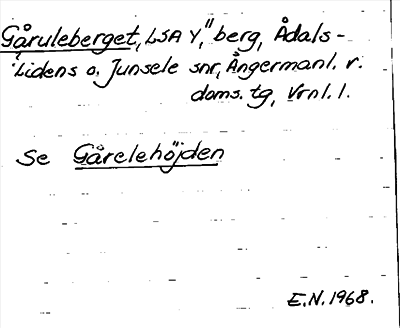 Gåruleberget, LSA Y, "berg, Ådals-
Lidens o. Junsele snr, Ångermanl. v.
doms. tg, Vrnl. l.
Se Gårelehöjden
E.N. 1968.